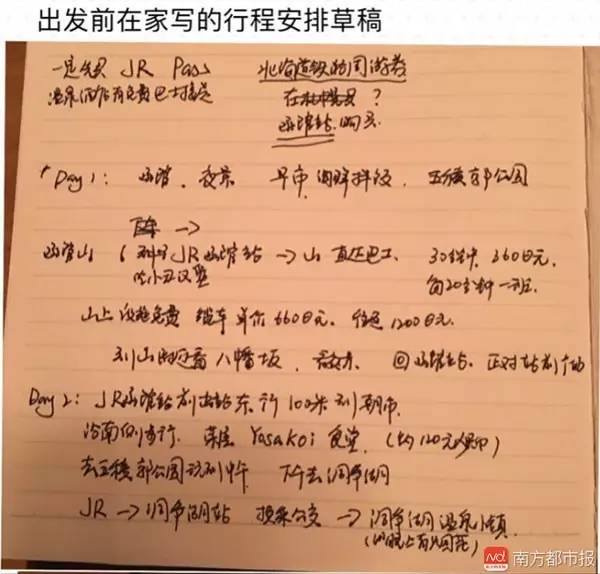 出发前在家写的行程安排草稿
一定先买 JR Pass 北海道铁路周游券
温泉酒店有免费巴士接送 在 ?
函馆站购买
*Day 1: 函馆、夜景 早市,海鲜拌饭、五稜郭公园
→
函馆山: JR函馆站 → 山 直达巴士、30分钟、360日元、
吃小丑汉堡 每20分钟一班
山上 免费 缆车 单价660日元、往返1200日元、
到山 看 八幡坂、 回函馆站、正对站前广场
Day 2: JR函馆站 出站东行100米到朝市、
沿南侧步行、 Yosakoi 食堂、(约120元人民币)
去五稜郭公园玩到中午 下午去洞爷湖
JR → 洞爷湖站 换乘公交 → 洞爷湖温泉小镇
(晚上有 )
南方都市报